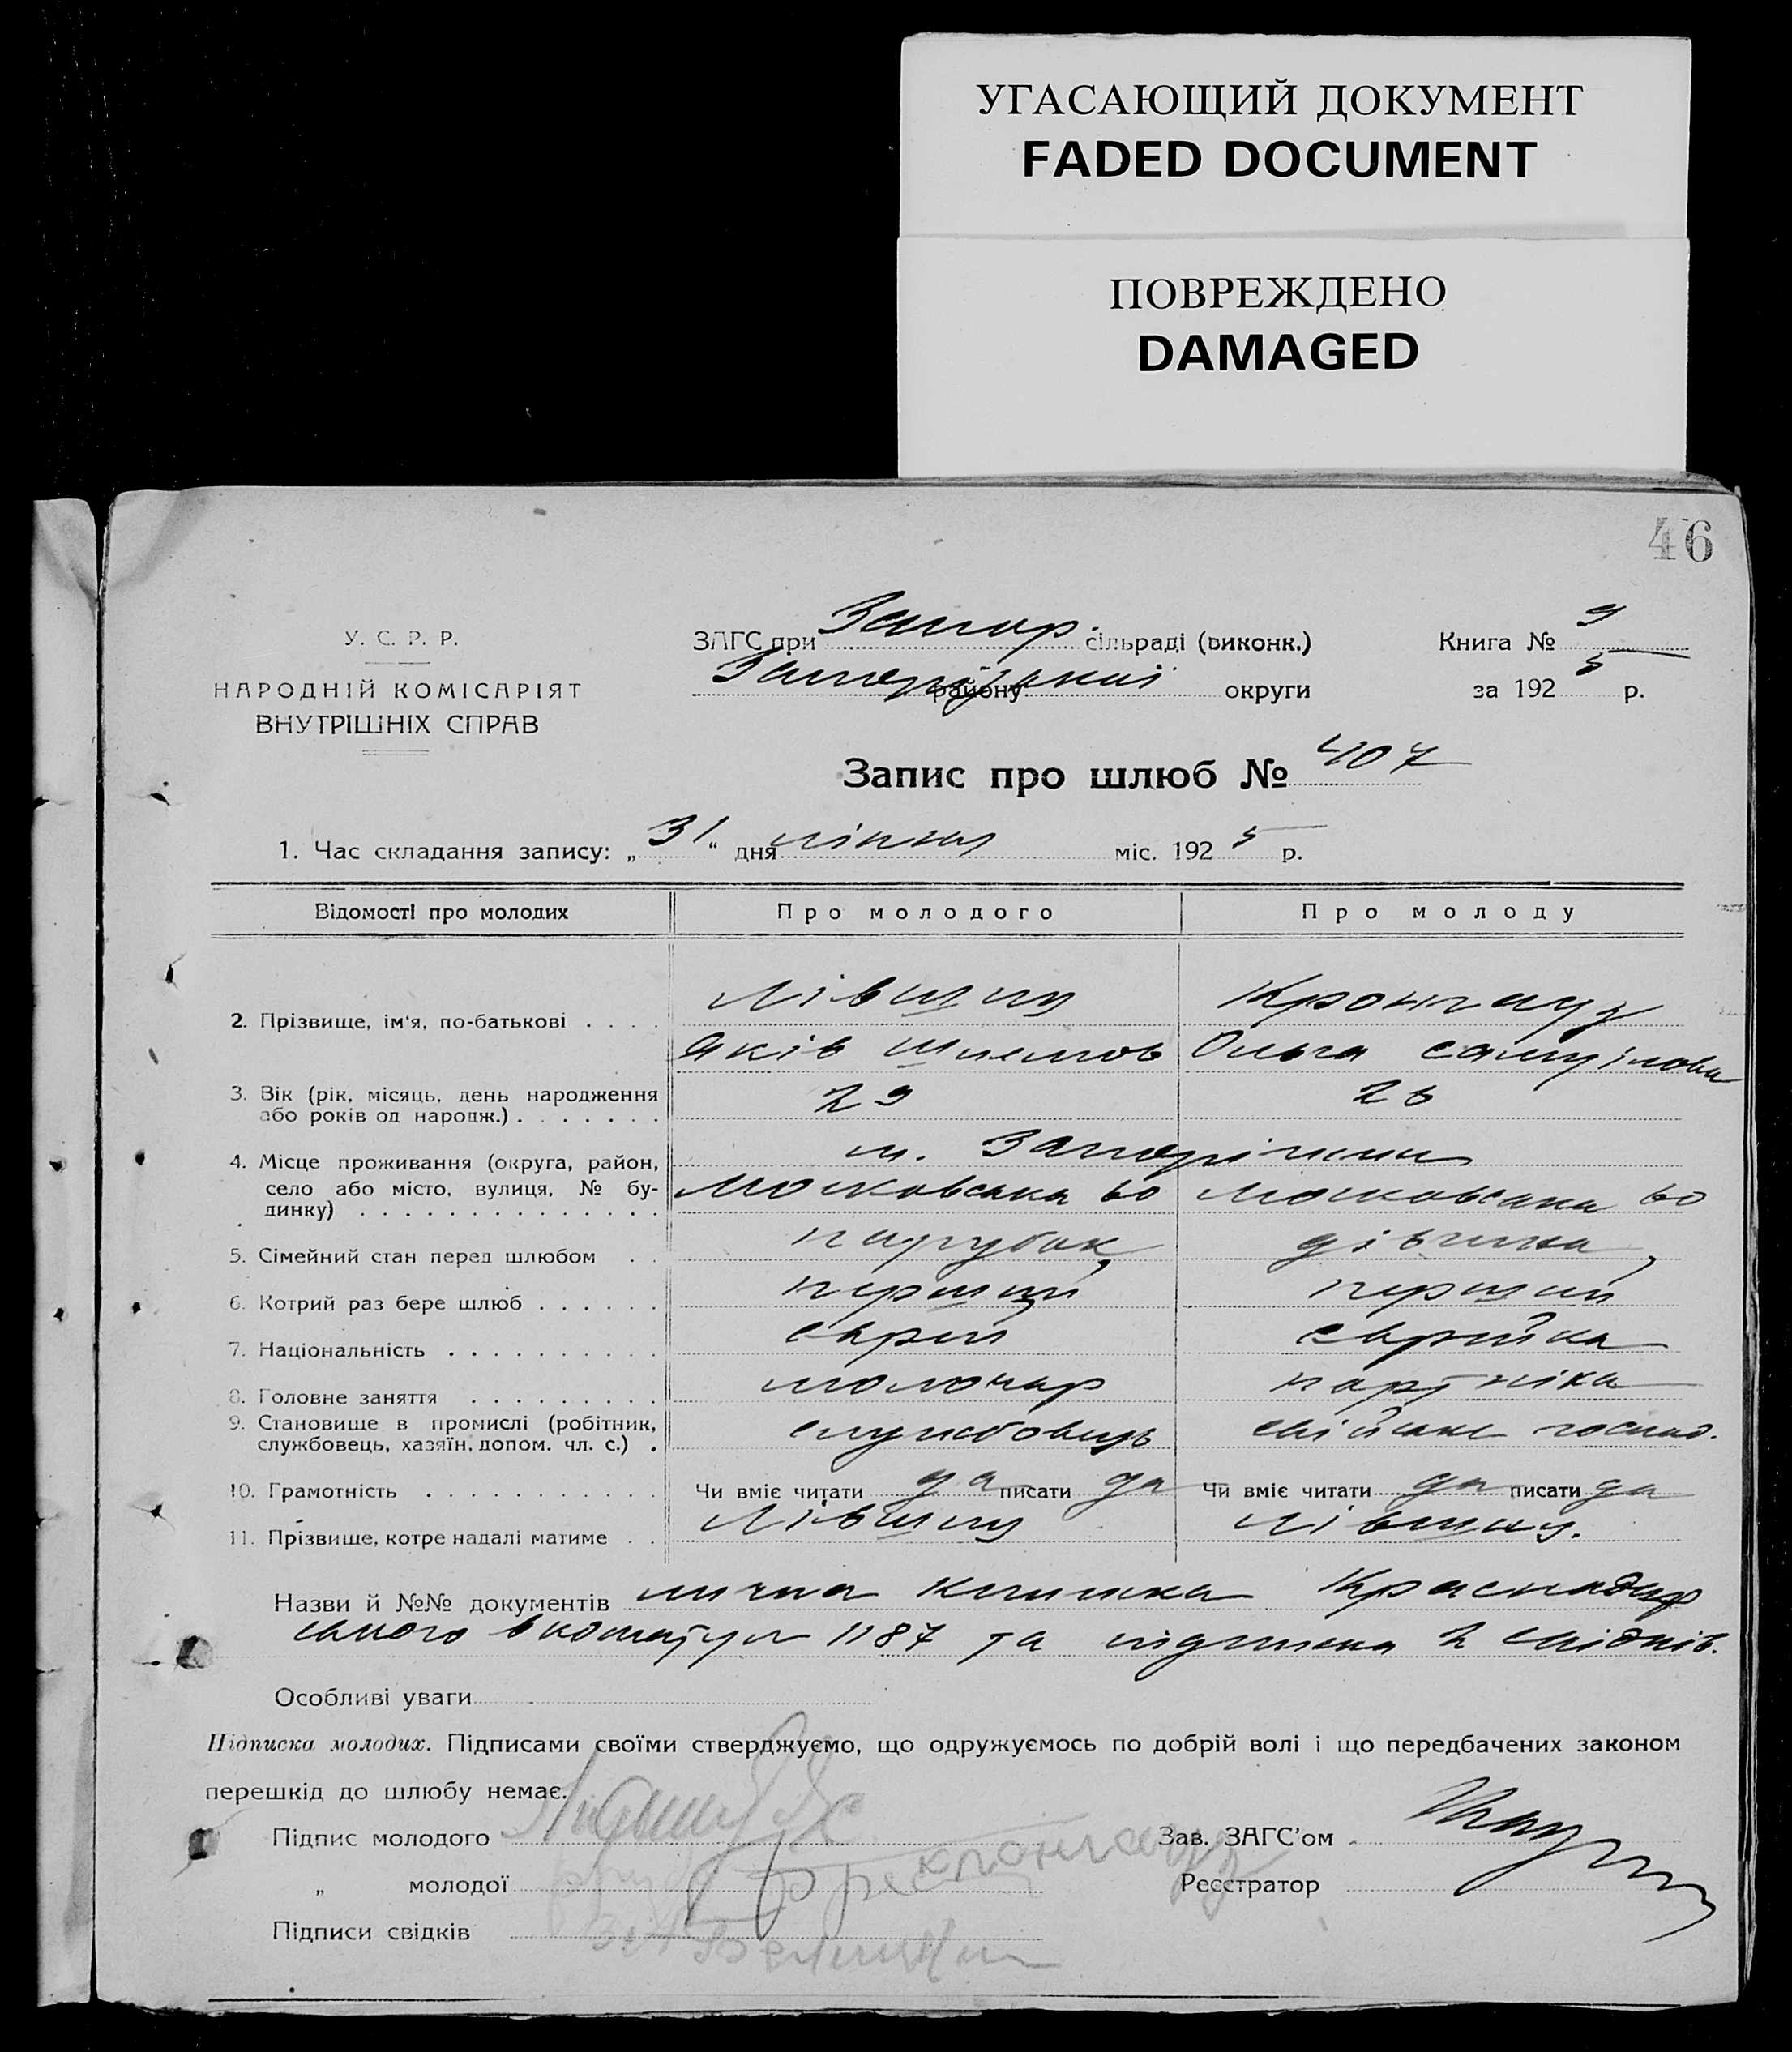 УГАСАЮЩИЙ ДОКУМЕНТ
FADED DOCUMENT
ПОВРЕЖДЕНО
DAMAGED
46
У. С. Р. Р.
НАРОДНІЙ КОМІСАРІЯТ
ВНУТРІШНІХ СПРАВ
ЗАГС при Запор. сільраді (виконк.)
Запорізької району округи
Книга № 9
за 192 5 р.
Запис про шлюб № 407
1. Час складання запису: „ 31 “ дня ліпня міс. 192 5 р.
Відомості про молодих Про молодого Про молоду
2. Прізвище, ім'я, по-батькові . . . . Лівшиц Кронгауз
Яків Шлемов Ольга Самуілова
3. Вік (рік, місяць, день народження
або років од народж.) . . . . . . . 29 26
4. Місце проживання (округа, район, м. Запоріжжи
село або місто, вулиця, № бу- Московська 60 Московська 60
динку) . . . . . . . . . . . . . .
5. Сімейний стан перед шлюбом . . парубок, дівчина,
6. Котрий раз бере шлюб . . . . . . перший перший
7. Національність . . . . . . . . . . еврей еврейка
8. Головне заняття . . . . . . . . . молочар
9. Становище в промислі (робітник,
службовець, хазяїн, допом. чл. с.) . службовець госпад.
10. Грамотність . . . . . . . . . . . Чи вміє читати да писати да Чи вміє читати да писати да
11. Прізвище, котре надалі матиме . . Лівшиц Лівшиц.
Назви й №№ документів лична книжка Краснадар
ського 1187 та підписка 2 свідків.
Особливі уваги
Підписка молодих. Підписами своїми стверджуємо, що одружуємось по добрій волі і що передбачених законом
перешкід до шлюбу немає.
Підпис молодого Зав. ЗАГС'ом
„ молодої Кронгауз Реєстратор
Підписи свідків